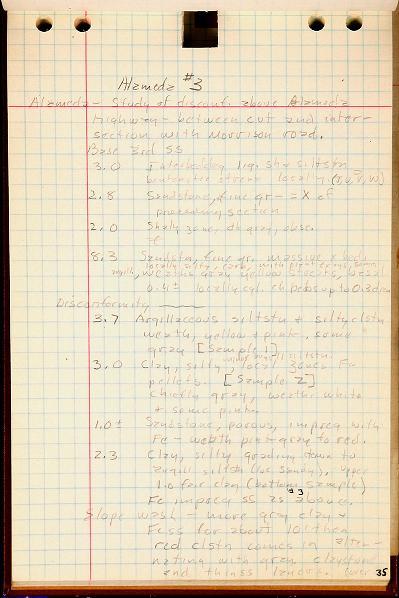 Alameda #3
Alameda - Study of disconf. above Alameda
Highway - between cut and inter-
section with Morrison road.
Base 3rd SS
3.0 Interbedded lig. sh & siltstn
bentonitic locally (T, U, V, W)
2.8 Sandstone, fine gr - = X of
preceding section
2.0 Shaly zone, dk gray,
8.3 Sandstn, fine gr, massive x beds
locally silty, with
weaths gray yellow basal
0.4± locally cgl. ch pebs up to 0.3 dm
Disconformity
3.7 Argillaceous siltstn & silty clstn
weath, yellow & pink, some
gray [Sample 1]
3.0 Clay, silty, local zones Fe
pellets. [Sample 2]
Chiefly gray, weather white
& some pink.
1.0± Sandstone, porous, impreg with
Fe - weath pink-gray to red.
2.3 Clay, silty grading down to
argill siltstn (loc sandy), upper
1.0 fair clay (bottom sample)
#3
Fe impreg SS as above.
Slope wash - more gray clay &
Fe ss for about 10' then
red clstn comes in alter-
nating with gran claystone
and thin ss lenses. (over
35